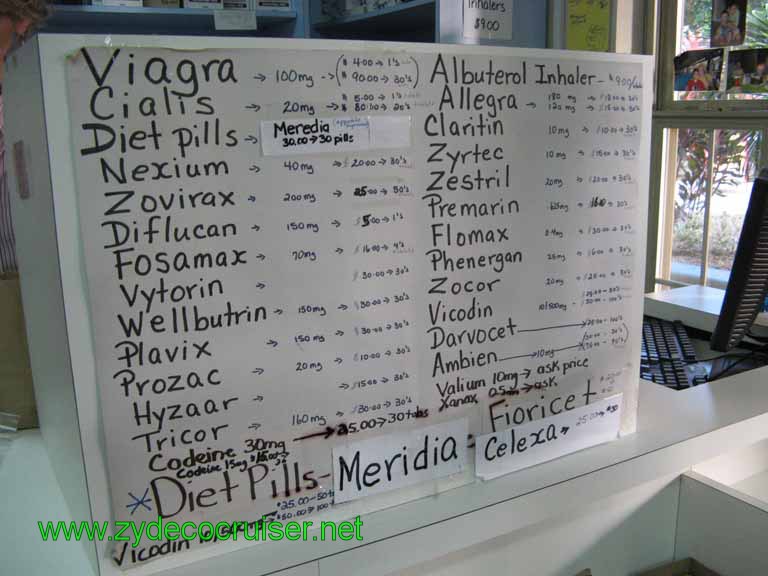 Inhalers
$9.00
Viagra → 100mg → $4.00 → 1's
$90.00 → 30's
Cialis → 20mg → $5.00 → 1's
$80.00 → 20's
Diet pills → Meredia
30.00 → 30 pills
Nexium 40mg → 20.00 → 30's
Zovirax 200mg → 25.00 → 50's
Diflucan → 150mg → 5.00 → 1's
Fosamax → 70mg → $16.00 → 4's
Vytorin → $30.00 → 30's
Wellbutrin → 150mg → $30.00 → 30's
Plavix → 150mg → $30.00 → 30's
Prozac → 20mg → $10.00 → 30's
Hyzaar → → $15.00 → 30's
Tricor → 160mg → $30.00 → 30's
Codeine 30mg → 25.00 → 30 tabs
Codeine 15mg
*Diet Pills - Meridia
$25.00 - 50
$50.00 → 100
Vicodin
Albuterol Inhaler - $9.00
Allegra → 180 mg → $18.00 → 30's
120 mg → $18.00 → 30's
Claritin 10mg → $10.00 → 30's
Zyrtec 10mg → $15.00 → 30's
Zestril 20mg → $20.00 → 30's
Premarin → 30's
Flomax 0.4mg → $30.00 → 30's
Phenergan 25mg → $6.00 → 30's
Zocor 20mg → $25.00 → 30's
Vicodin 10/500mg
Darvocet
Ambien → 10mg
Valium 10mg → ask price
Xanax 0.5m → ask
Fioricet
Celexa → 25.00 → 30
www.zydecocruiser.net